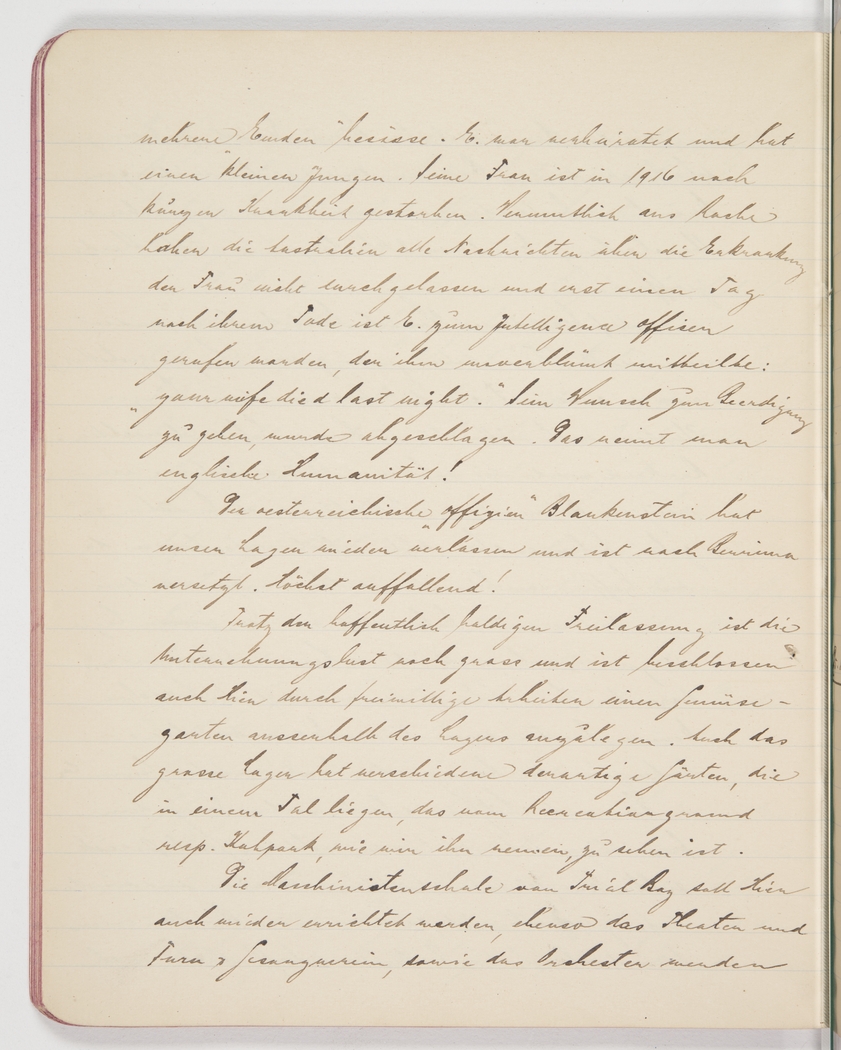 mehrere Emden "besässe. E. war verheiratet und hat
einen kleinen Jungen. Seine Frau ist in 1916 nach
kurzen Krankheit gestorben. Vermuthlich aus Rache
haben die Australien alle Nachrichten über die Erkrankung
der Frau nicht durchgelassen und erst einen Tag
nach ihrem Tode ist E. zum Intelligence officer
gerufen worden, der ihm unverblümt mittheilte:
"your wife died last night." Sein Wunsch zum Beerdigung
zu gehen, wurde abgeschlagen. Das nennt man
englische Humanität!
Der oesterreichische "Offizier" Blankenstein hat
unser Lager wieder verlassen und ist nach Berrima
versetzt. Höchst auffallend!
Trotz der hoffentlich baldigen Freilassung ist die
Unternehmungslust noch gross und ist beschlossen
auch hier durch freiwillige Arbeiten einen Gemüse-
garten ausserhalb des Lagers anzulegen. Auch das
grosse Lager hat verschiedene derartige Gärten, die
in einem Tal liegen, das vom Recreationground
resp. Kuhpark, wie wir ihn nennen, zu sehen ist.
Die Maschinistenschule von Trial Bay soll hier
auch wieder errichtet werden, ebenso das Theater und
Turn & Gesangverein, sowie das Orchester werden